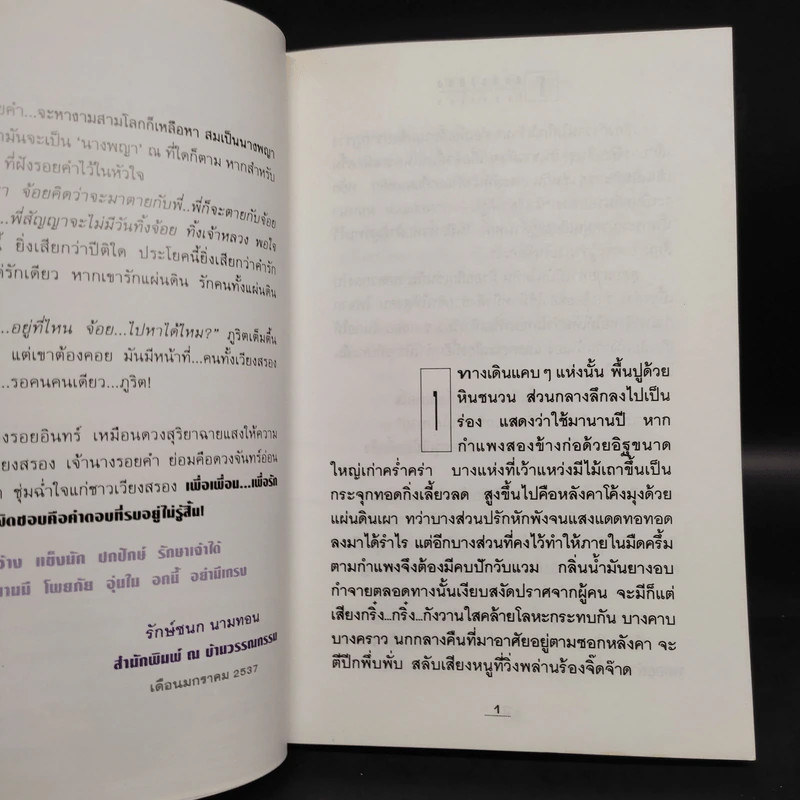 ยคำ...จะหางามสามโลกก็เหลือหา สมเป็นนางพญา
ามันจะเป็น ‘นางพญา’ ณ ที่ใดก็ตาม หากสำหรับ
ที่ฝังรอยคำไว้ในหัวใจ
า จ้อยคิดว่าจะมาตายกับพี่..พี่ก็จะตายกับจ้อย
...พี่สัญญาจะไม่มีวันทิ้งจ้อย ทิ้งเจ้าหลวง พอใจ
ี้ ยิ่งเสียกว่าปีติใด ประโยคนี้ยิ่งเสียกว่าคำรัก
่รักเดียว หากเขารักแผ่นดิน รักคนทั้งแผ่นดิน
...อยู่ที่ไหน จ้อย...ไปหาได้ไหม?” ภูริตเต็มตื้น
แต่เขาต้องคอย มันมีหน้าที่...คนทั้งเวียงสรอง
...รอคนคนเดียว...ภูริต!
งรอยอินทร์ เหมือนดวงสุริยาฉายแสงให้ความ
ยงสรอง เจ้านางรอยคำ ย่อมคือดวงจันทร์อ่อน
ชุ่มฉ่ำใจแก่ชาวเวียงสรอง เพื่อเพื่อน...เพื่อรัก
ผิดชอบคือคำตอบที่รบอยู่ไม่รู้สิ้น!
ว้าง แข็งนัก ปกปักษ์ รักษาเจ้าได้
านมี โพยภัย อุ่นใน อกนี้ อย่ามีเกรง
รักษ์ชนก นามทอน
สำนักพิมพ์ ณ บ้านวรรณกรรม
เดือนมกราคม 2537
1
ทางเดินแคบๆ แห่งนั้น พื้นปูด้วย
หินชนวน ส่วนกลางลึกลงไปเป็น
ร่อง แสดงว่าใช้มานานปี หาก
กำแพงสองข้างก่อด้วยอิฐขนาด
ใหญ่เก่าคร่ำคร่า บางแห่งที่เว้าแหว่งมีไม้เถาขึ้นเป็น
กระจุกทอดกิ่งเลี้ยวลด สูงขึ้นไปคือหลังคาโค้งมุงด้วย
แผ่นดินเผา ทว่าบางส่วนปรักหักพังจนแสงแดดทอทอด
ลงมาได้รำไร แต่อีกบางส่วนที่คงไว้ทำให้ภายในมืดครึ้ม
ตามกำแพงจึงต้องมีคบปักวับแวม กลิ่นน้ำมันยางอบ
กำจายตลอดทางนั้นเงียบสงัดปราศจากผู้คน จะมีก็แต่
เสียงกริ๋ง...กริ๋ง...กังวานใสคล้ายโลหะกระทบกัน บางคาบ
บางคราว นกกลางคืนที่มาอาศัยอยู่ตามซอกหลังคา จะ
ตีปีกพึ่บพั่บ สลับเสียงหนูที่วิ่งพล่านร้องจี๊ดจ๊าด
1